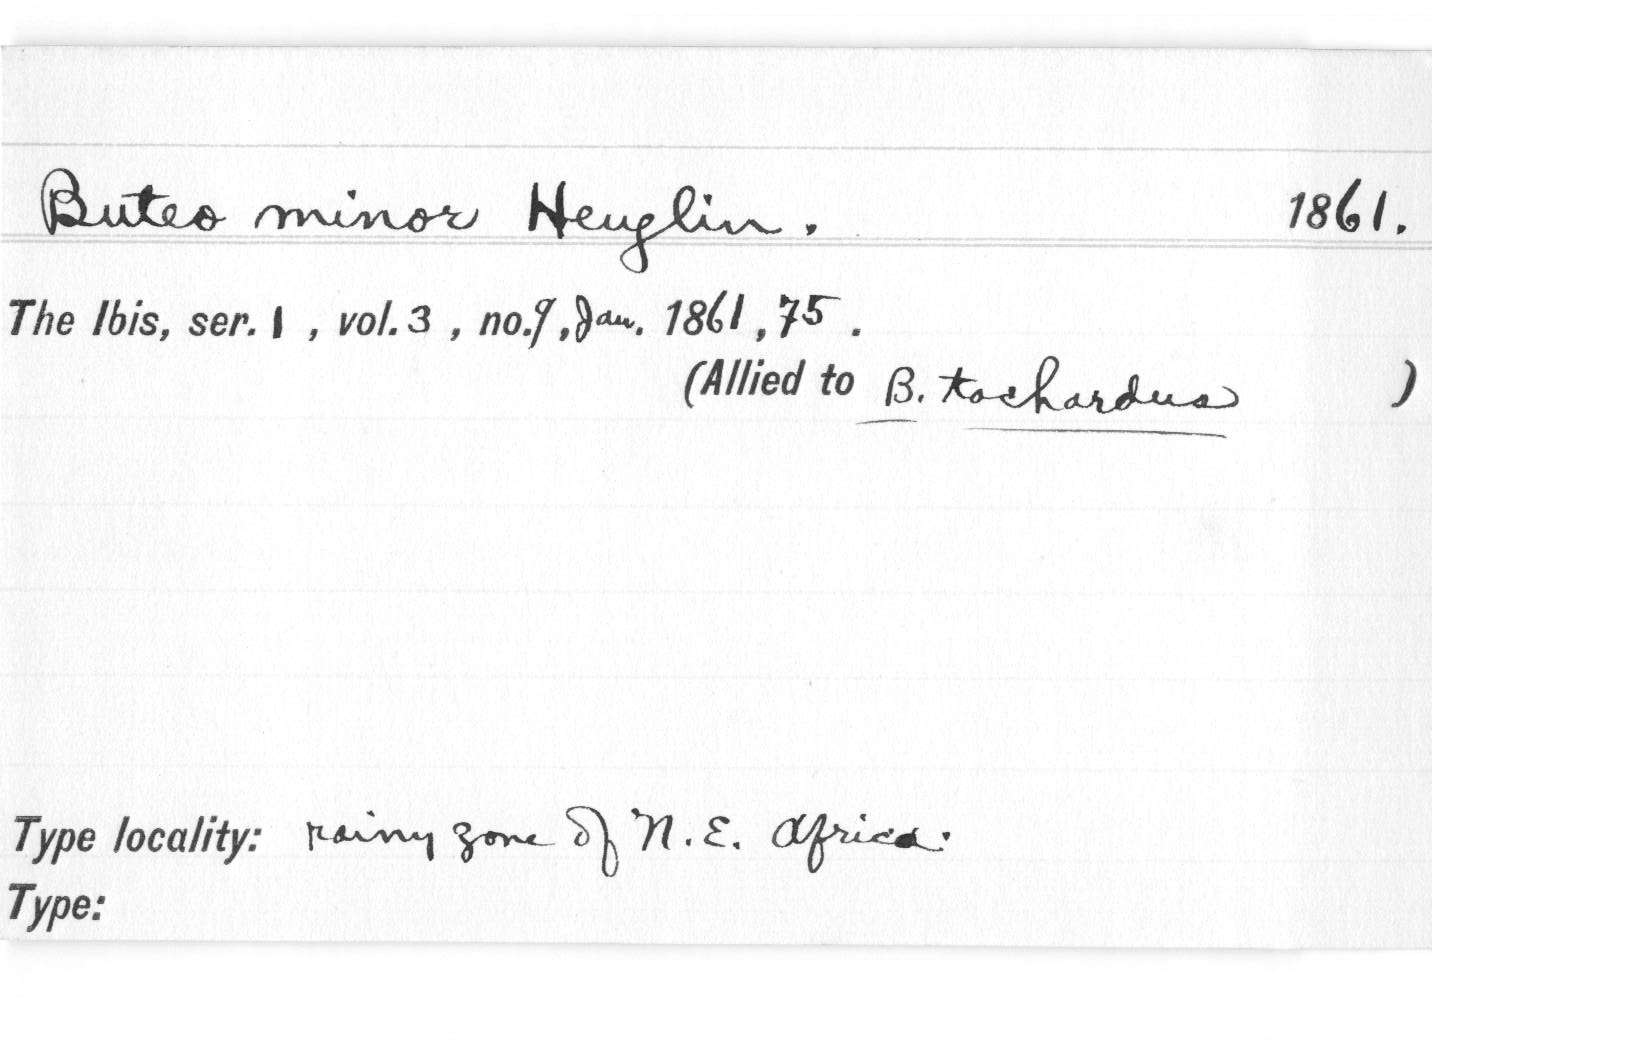 Buteo minor Heuglin. 1861.
The Ibis, ser. 1, vol. 3, no. 9, Jan. 1861, 75.
(Allied to B. tachardus)
Type locality: rainy zone of N.E. Africa.
Type: